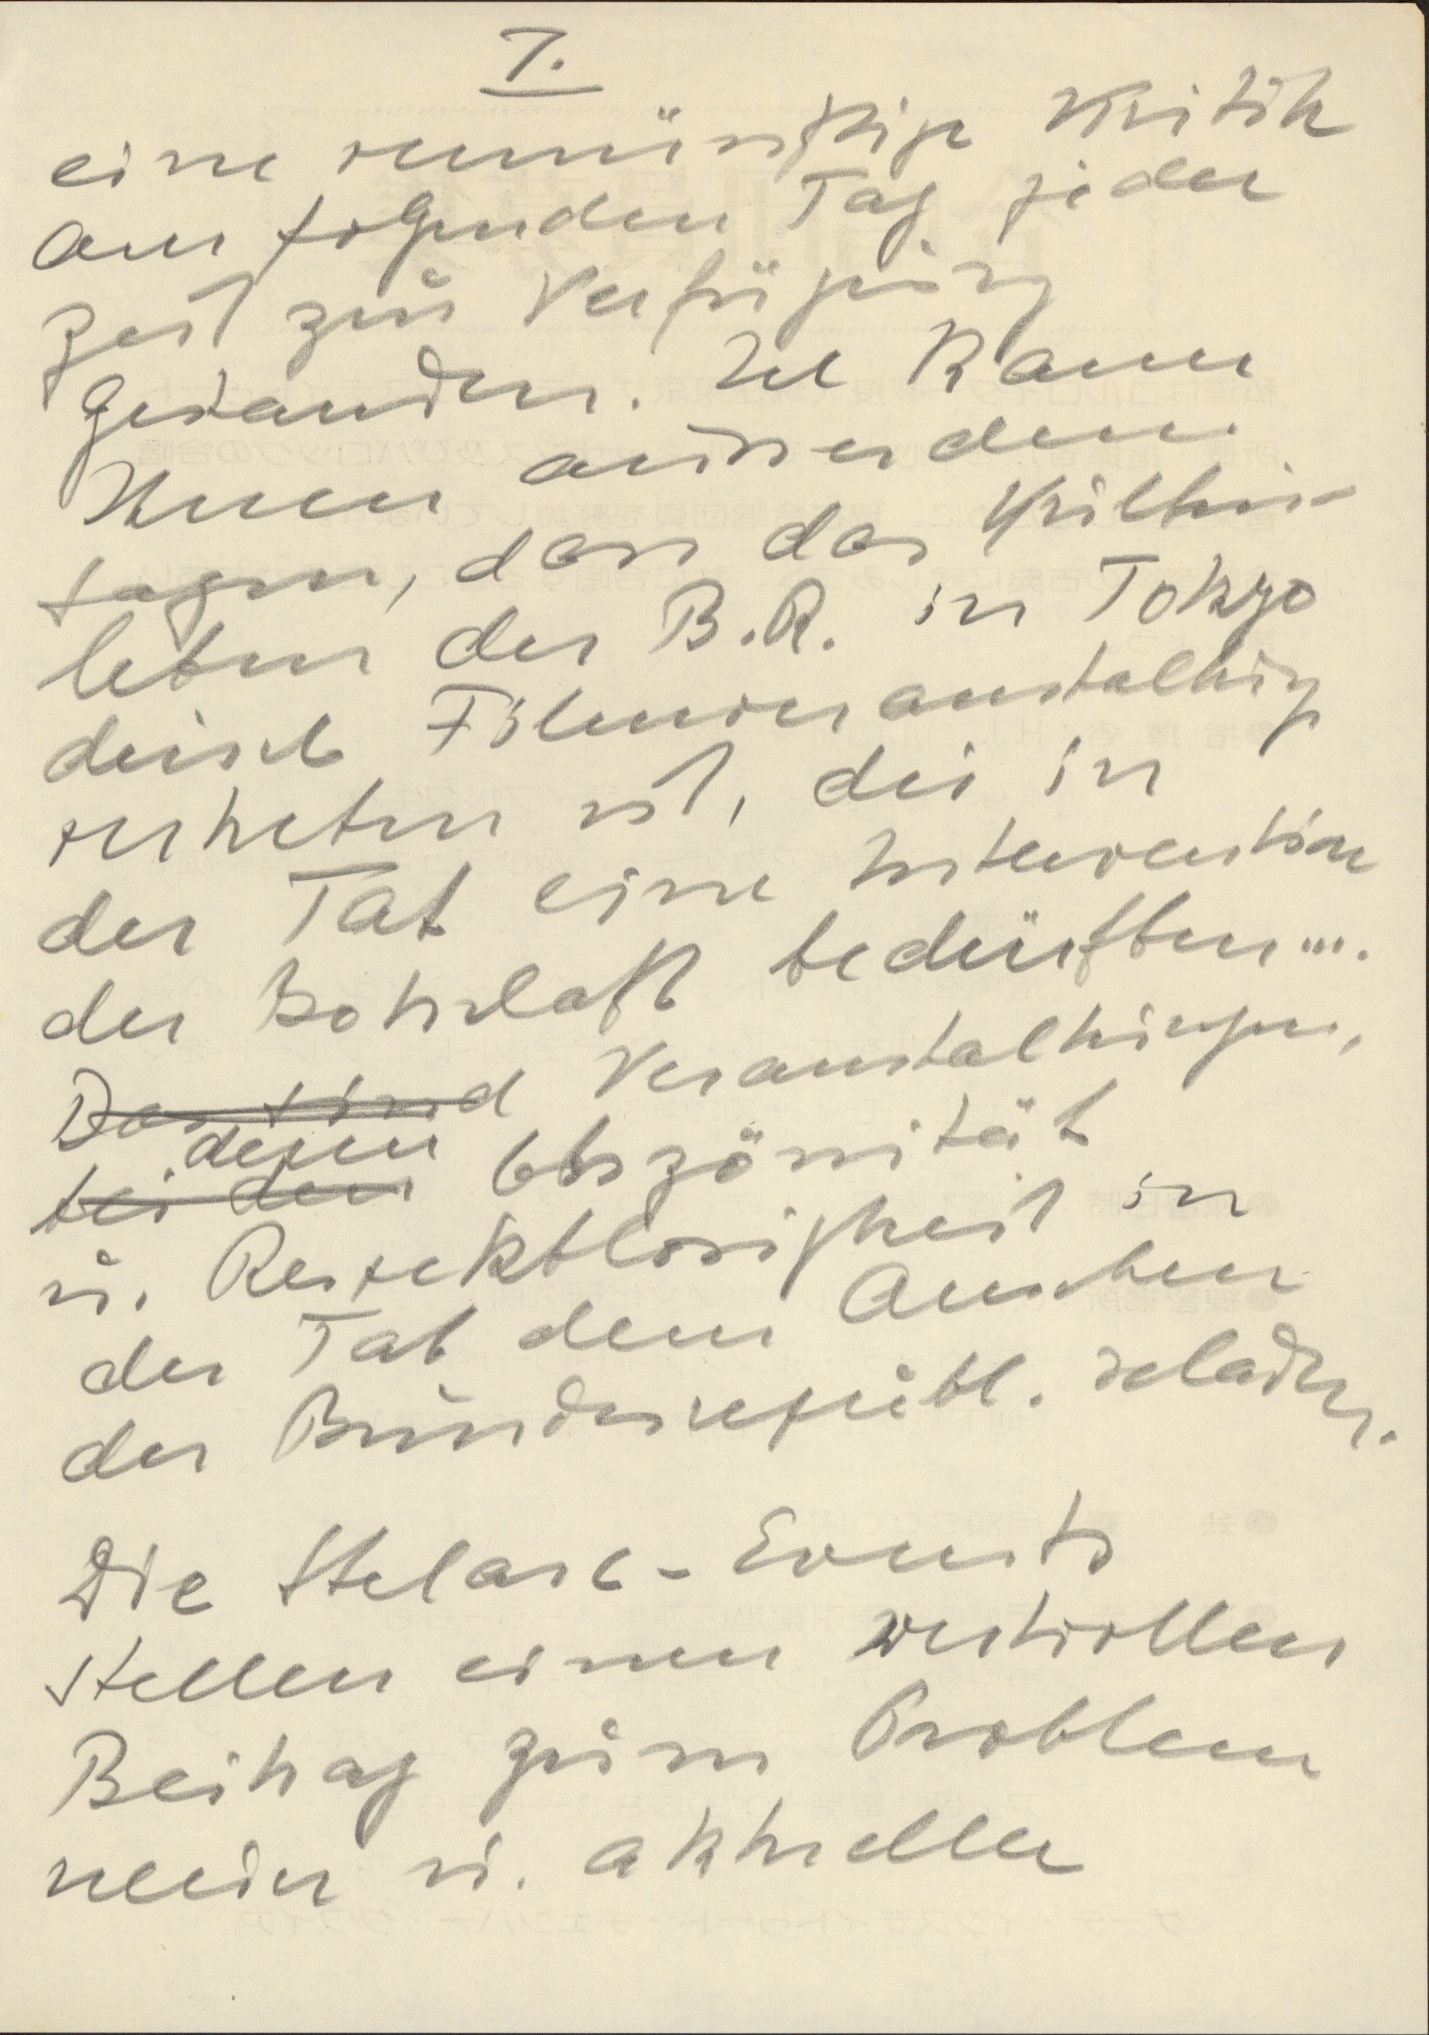 7.
eine vernünftige Kritik
am folgenden Tag jeder
zeit zur Verfügung
gestanden. Ich kann
Ihnen ausserdem
sagen, dass das Kultur-
leben der B.R. in Tokyo
durch Filmveranstaltung
vertreten ist, die in
der Tat eine Intervention
der Botschaft bedürften....
Das sind Veranstaltungen,
deren
bei den Obszönität
u. Respektlosigkeit in
der Tat dem Ansehen
der Bundesrepubl. schaden.
Die Stelarc-Events
stellen einen wertvollen
Beitrag zum Problem
neuer u. aktueller